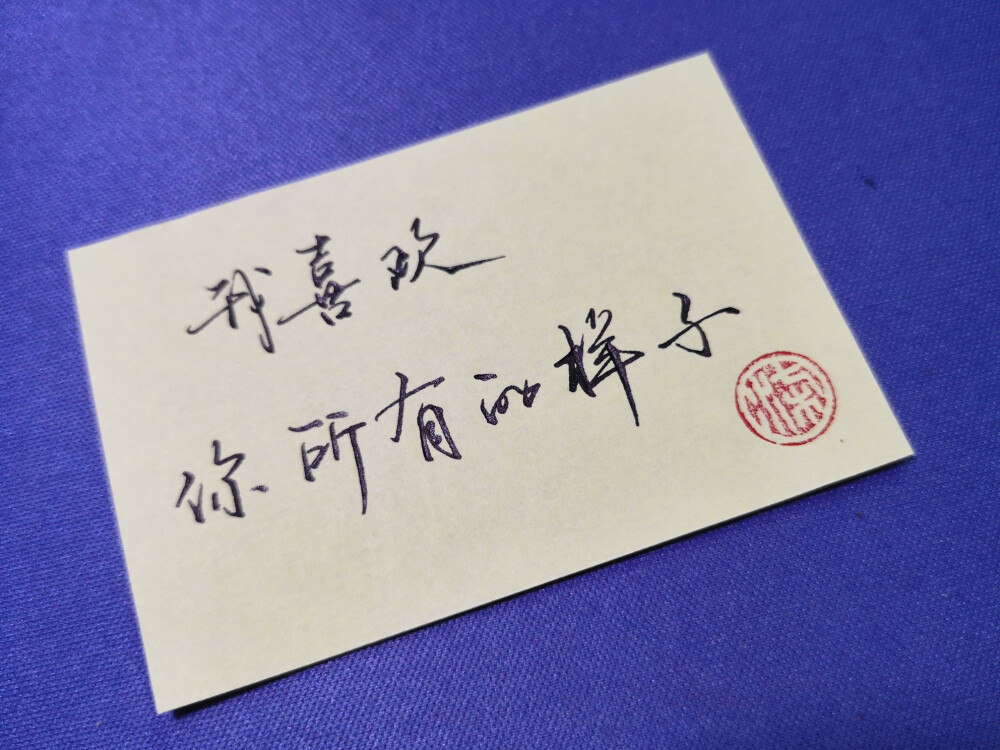 我喜欢
你所有的样子